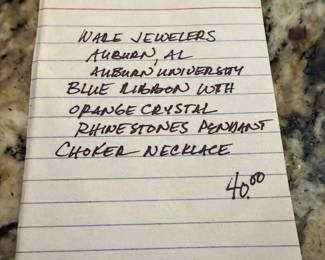 WARE JEWELERS
AUBURN, AL
AUBURN UNIVERSITY
BLUE RIBBON WTH
ORANGE CRYSTAL
RHINESTONES PENDANT
CHOKER NECKLACE
40.00